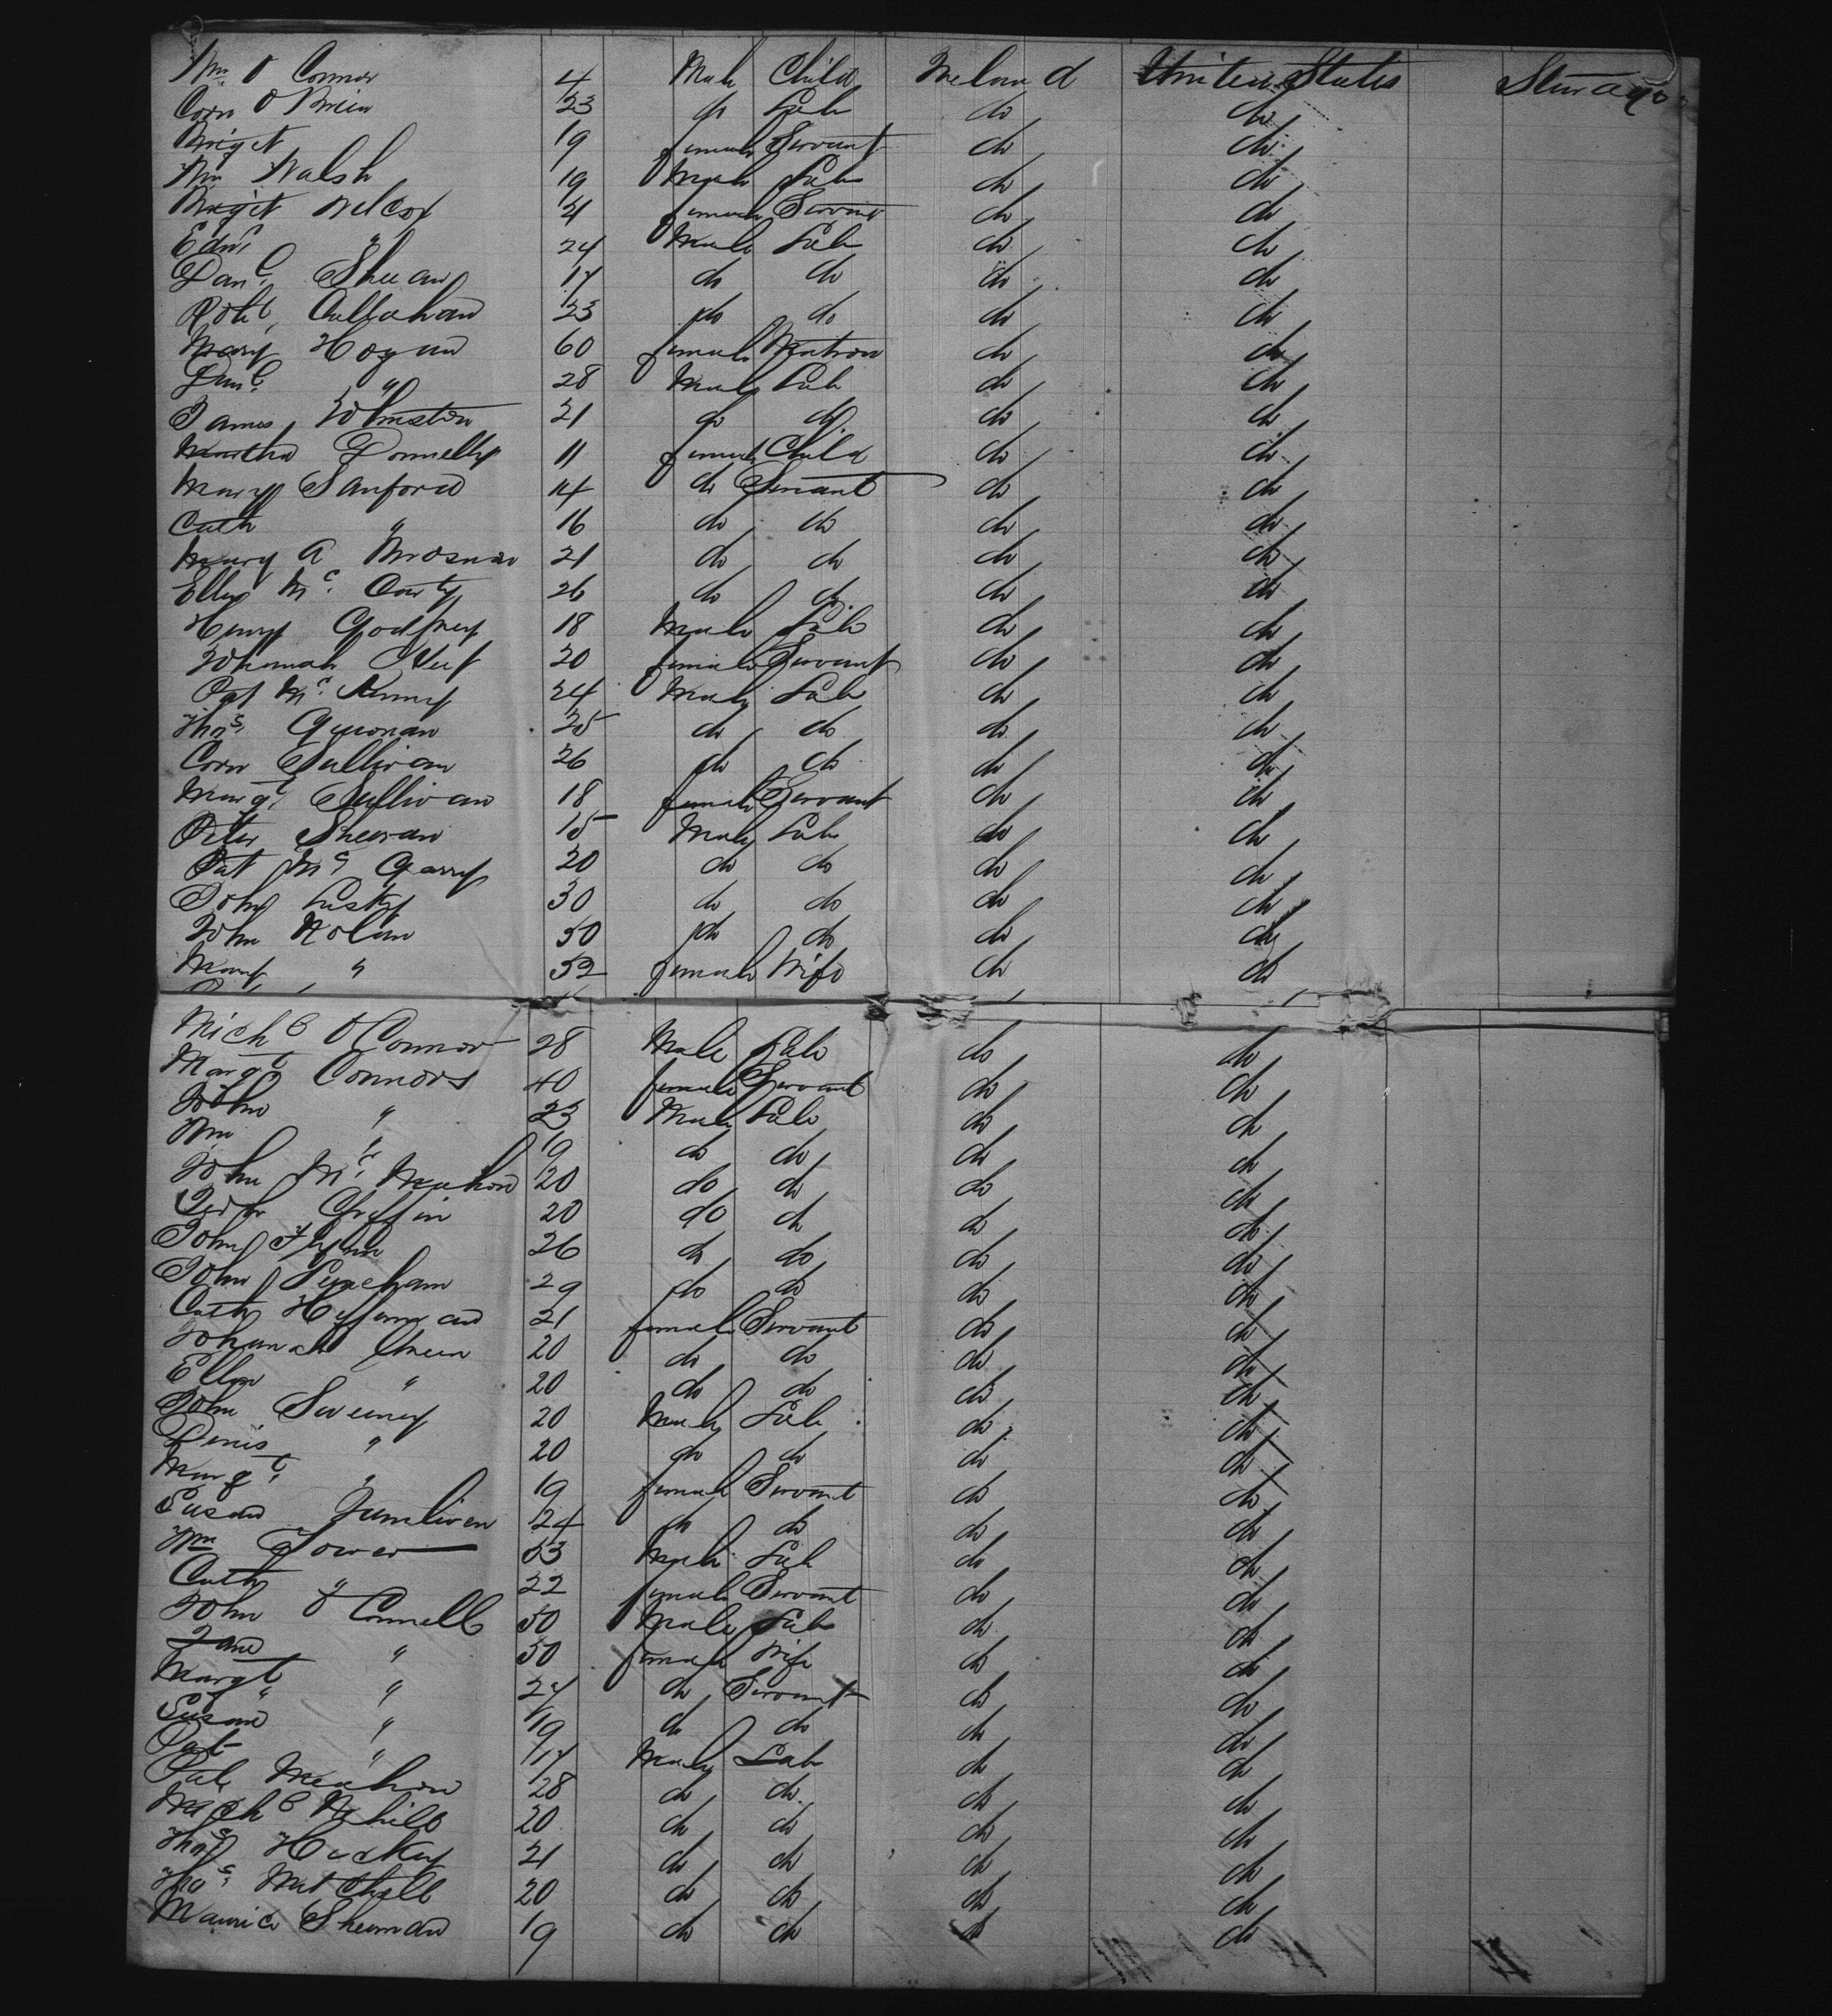 Wm O Connor 4 Male Child Ireland United States Sterage
Corn O Brien 23 do Lab do do
Briget " 19 female Servant do do
Wm Walsh 19 Male Lab do do
Briget Wilcox 21 female Servant do do
Edwd " 24 Male Lab do do
Danl. Sheean 17 do do do do
Robt. Callahan 23 do do do do
Mary Hogan 60 female Matron do do
Danl. " 28 Male Lab do do
James Johnston 21 do do do do
Martha Donnelly 11 female Child do do
Mary Sanford 14 do Servant do do
Cath " 16 do do do do
Mary A Brosnan 21 do do do do
Ellen Mc. Carty 26 do do do do
Henry Godfrey 18 Male Lab do do
Johanah 20 female Servant do do
Pat Mc. Kenny 24 Male Lab do do
Thos. 25 do do do do
Corn Sullivan 26 do do do do
Margt. Sullivan 18 female Servant do do
Peter Sheeran 15 Male Lab do do
Pat Mc. Garry 20 do do do do
John Lusky 30 do do do do
John Nolan 50 do do do do
Mary " 52 female Wife do do
Michl O Connor 28 Male Lab do do
Margt Connors 40 female Servant do do
John " 23 Male Lab do do
Wm " 19 do do do do
John Mc. Mahon 20 do do do do
Griffin 20 do do do do
John Flynn 26 do do do do
John 29 do do do do
Cath Heffernan 21 female Servant do do
Johanah 20 do do do do
Ellen " 20 do do do do
John Sweeney 20 Male Lab do do
Denis " 20 do do do do
Margt. " 19 female Servant do do
Susan 24 do do do do
Wm 53 Male Lab do do
Cath " 22 female Servant do do
John O Connell 50 Male Lab do do
Jane " 50 female Wife do do
Margt " 24 do Servant do do
Susan " 19 do do do do
Pat " 17 Male Lab do do
Pat Meahan 28 do do do do
Michl Nehill 20 do do do do
Thos. Huckey 21 do do do do
Thos. Mitchell 20 do do do do
Maurice Sheeman 19 do do do do